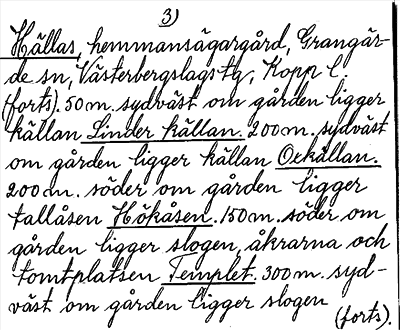 3)
Hällas, hemmansägargård, Grangär-
de sn, Västerbergslags tg, Kopp l.
(forts). 50 m. sydväst om gården ligger
källan Linder källan. 200 m. sydväst
om gården ligger källan Oxkällan.
200 m. söder om gården ligger
tallåsen Hökåsen. 150 m. söder om
gården ligger slogen, åkrarna och
tomtplatsen Templet. 300 m. syd-
väst om gården ligger slogen
(forts).